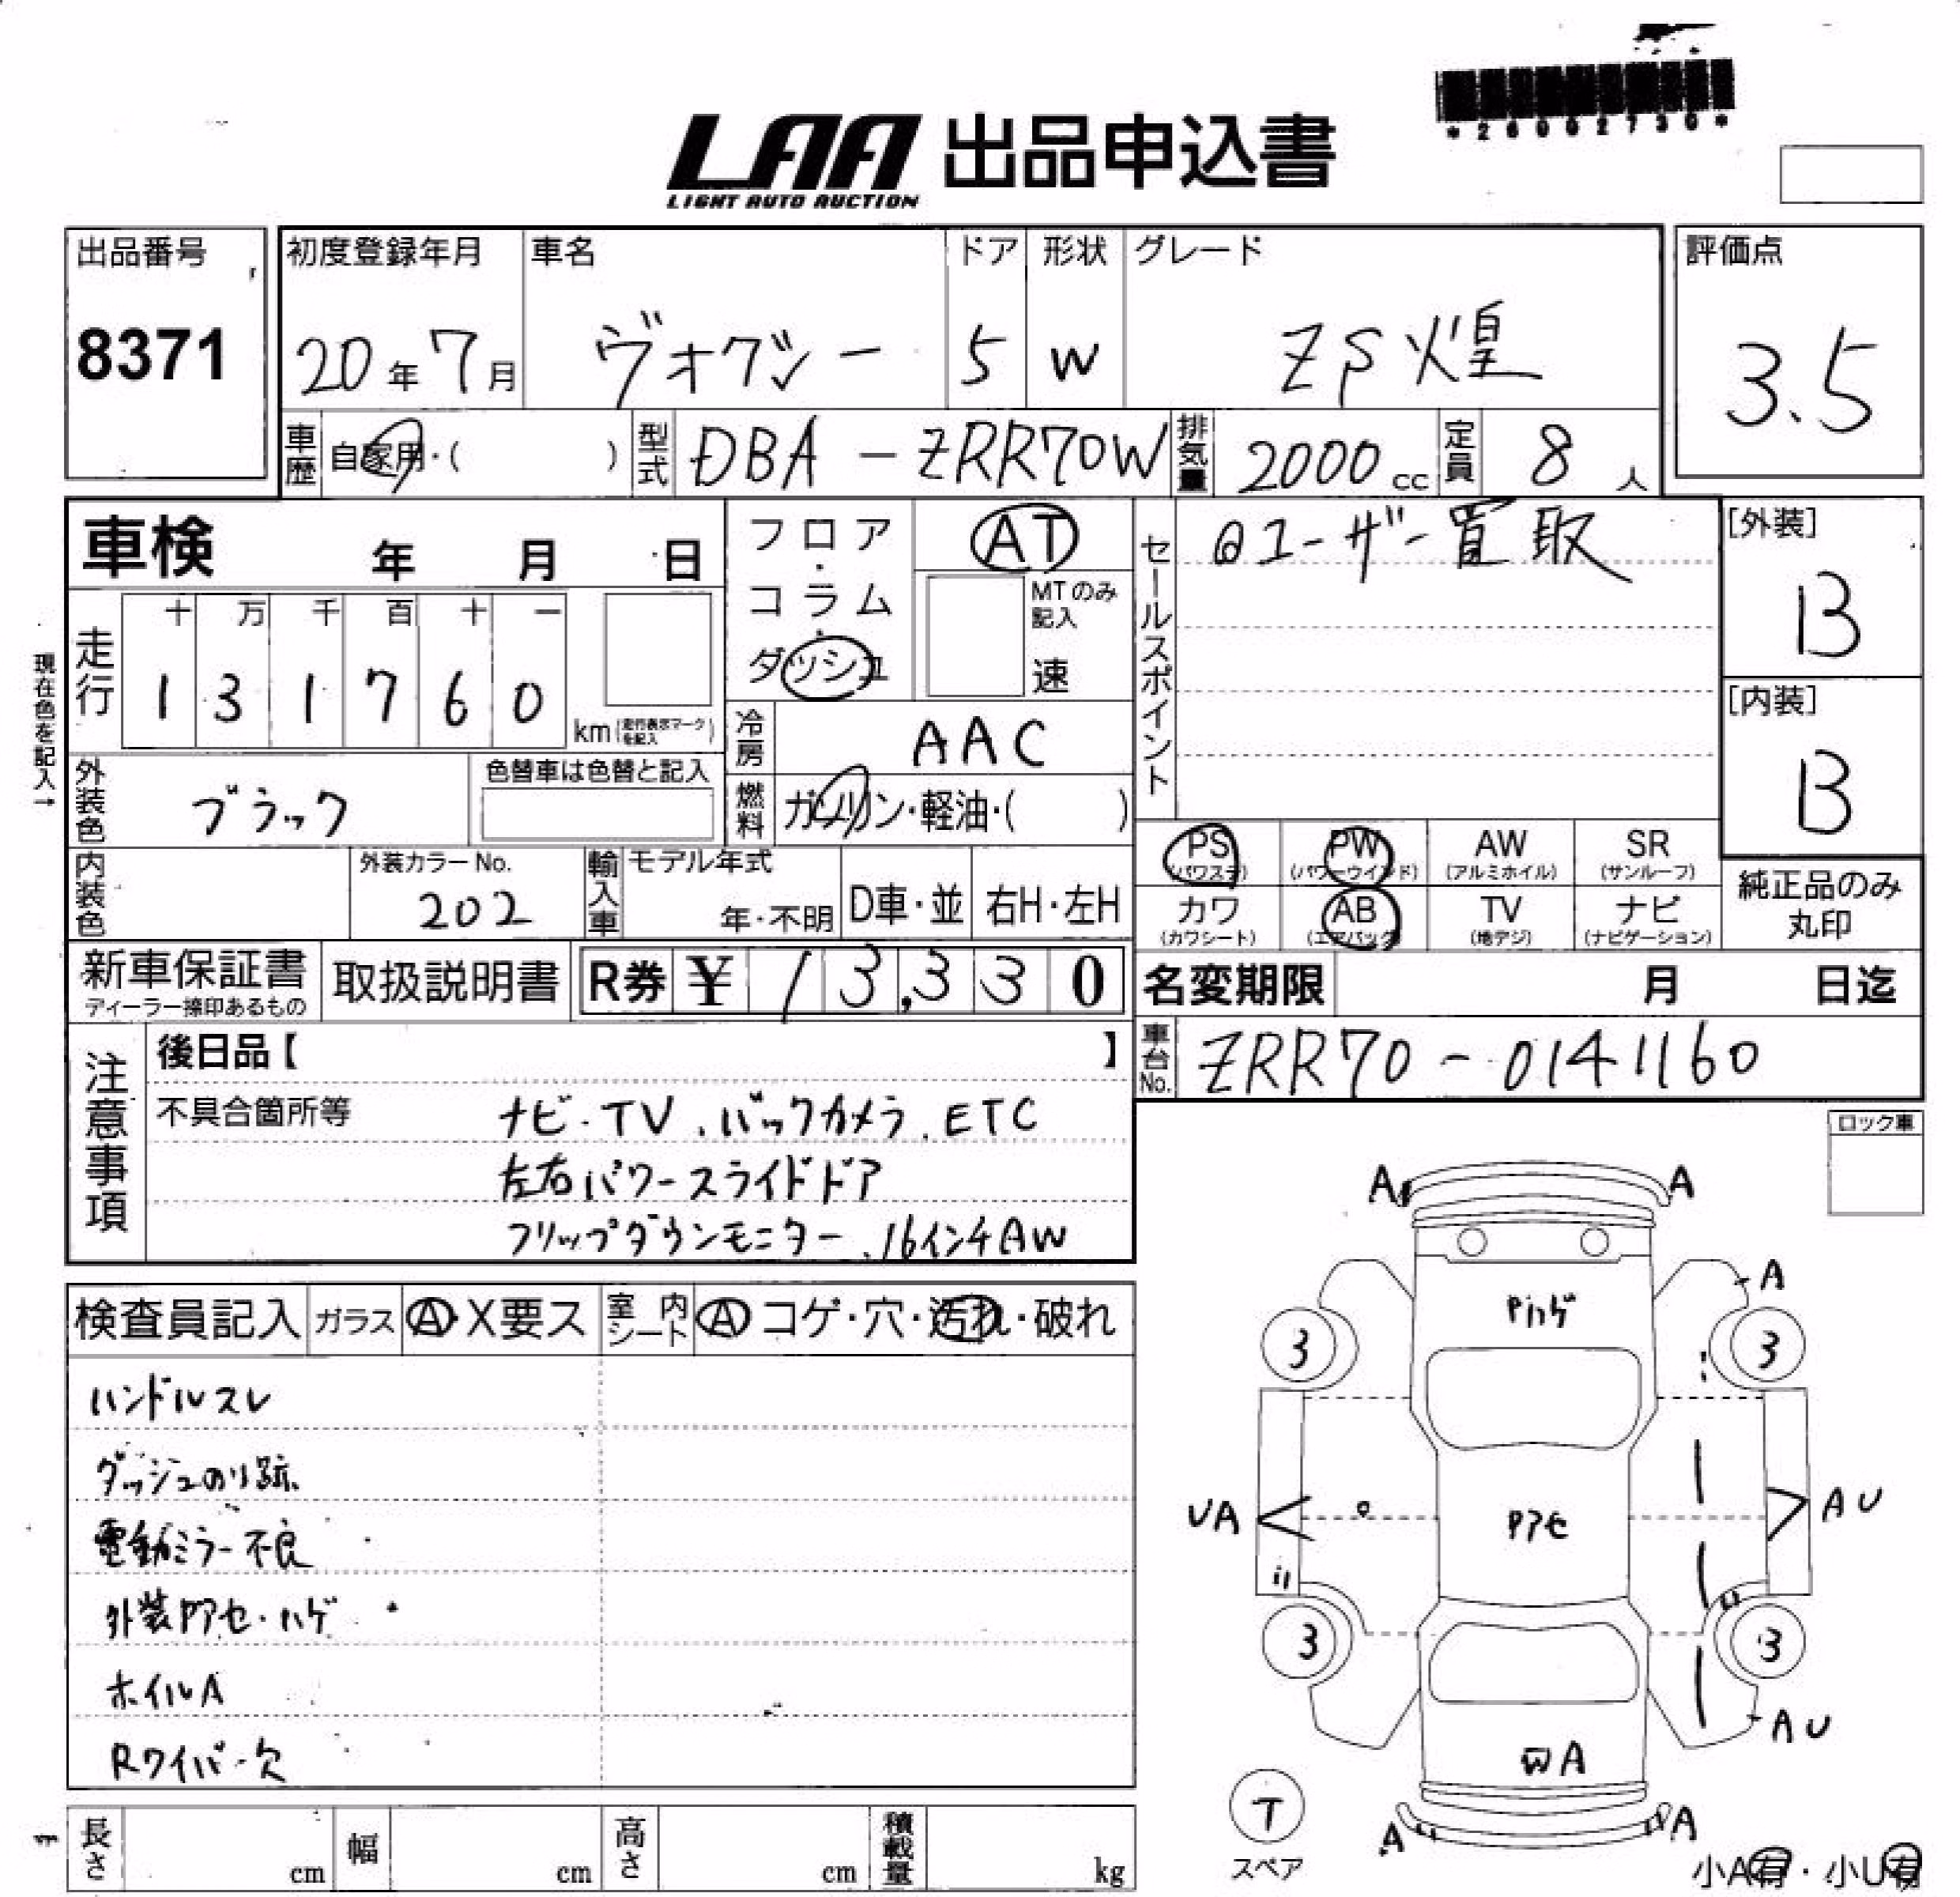 *26002730*
LAA 出品申込書
LIGHT AUTO AUCTION
出品番号
8371
初度登録年月
20年7月
車名
ヴォクシー
ドア
5
形状
W
グレード
ZS煌
評価点
3.5
車歴 自家用・( )
型式 DBA-ZRR70W
排気量 2000cc
定員 8人
車検 年 月 日
フロア・コラム・ダッシュ
AT
MTのみ記入
速
セールスポイント
@ユーザー買取
[外装]
B
[内装]
B
現在色を記入→
走行
十 万 千 百 十 一
1 3 1 7 6 0
km(走行表示マークを記入)
冷房 AAC
燃料 ガソリン・軽油・( )
外装色 ブラック
色替車は色替と記入
内装色
外装カラーNo.
202
輸入車
モデル年式
年・不明
D車・並
右H・左H
PS (パワステ)
PW (パワーウインド)
AW (アルミホイル)
SR (サンルーフ)
カワ (カワシート)
AB (エアバッグ)
TV (地デジ)
ナビ (ナビゲーション)
純正品のみ丸印
新車保証書
ディーラー捺印あるもの
取扱説明書
R券 ¥ 13,330
名変期限 月 日迄
車台No. ZRR70-0141160
注意事項
後日品【 】
不具合箇所等
ナビ・TV、バックカメラ、ETC
左右パワースライドドア
フリップダウンモニター、16インチAW
ロック車
検査員記入
ガラス A・X要ス
室内シート A コゲ・穴・汚れ・破れ
ハンドルスレ
ダッシュのり跡
電動ミラー不良
外装Pアセ・ハゲ
ホイルA
Rワイパー欠
A A
A
Pハゲ
3 3
UA
Pアセ
AU
3 3
AU
WA
T
スペア
A A
小A有・小U有
長さ cm
幅 cm
高さ cm
積載量 kg